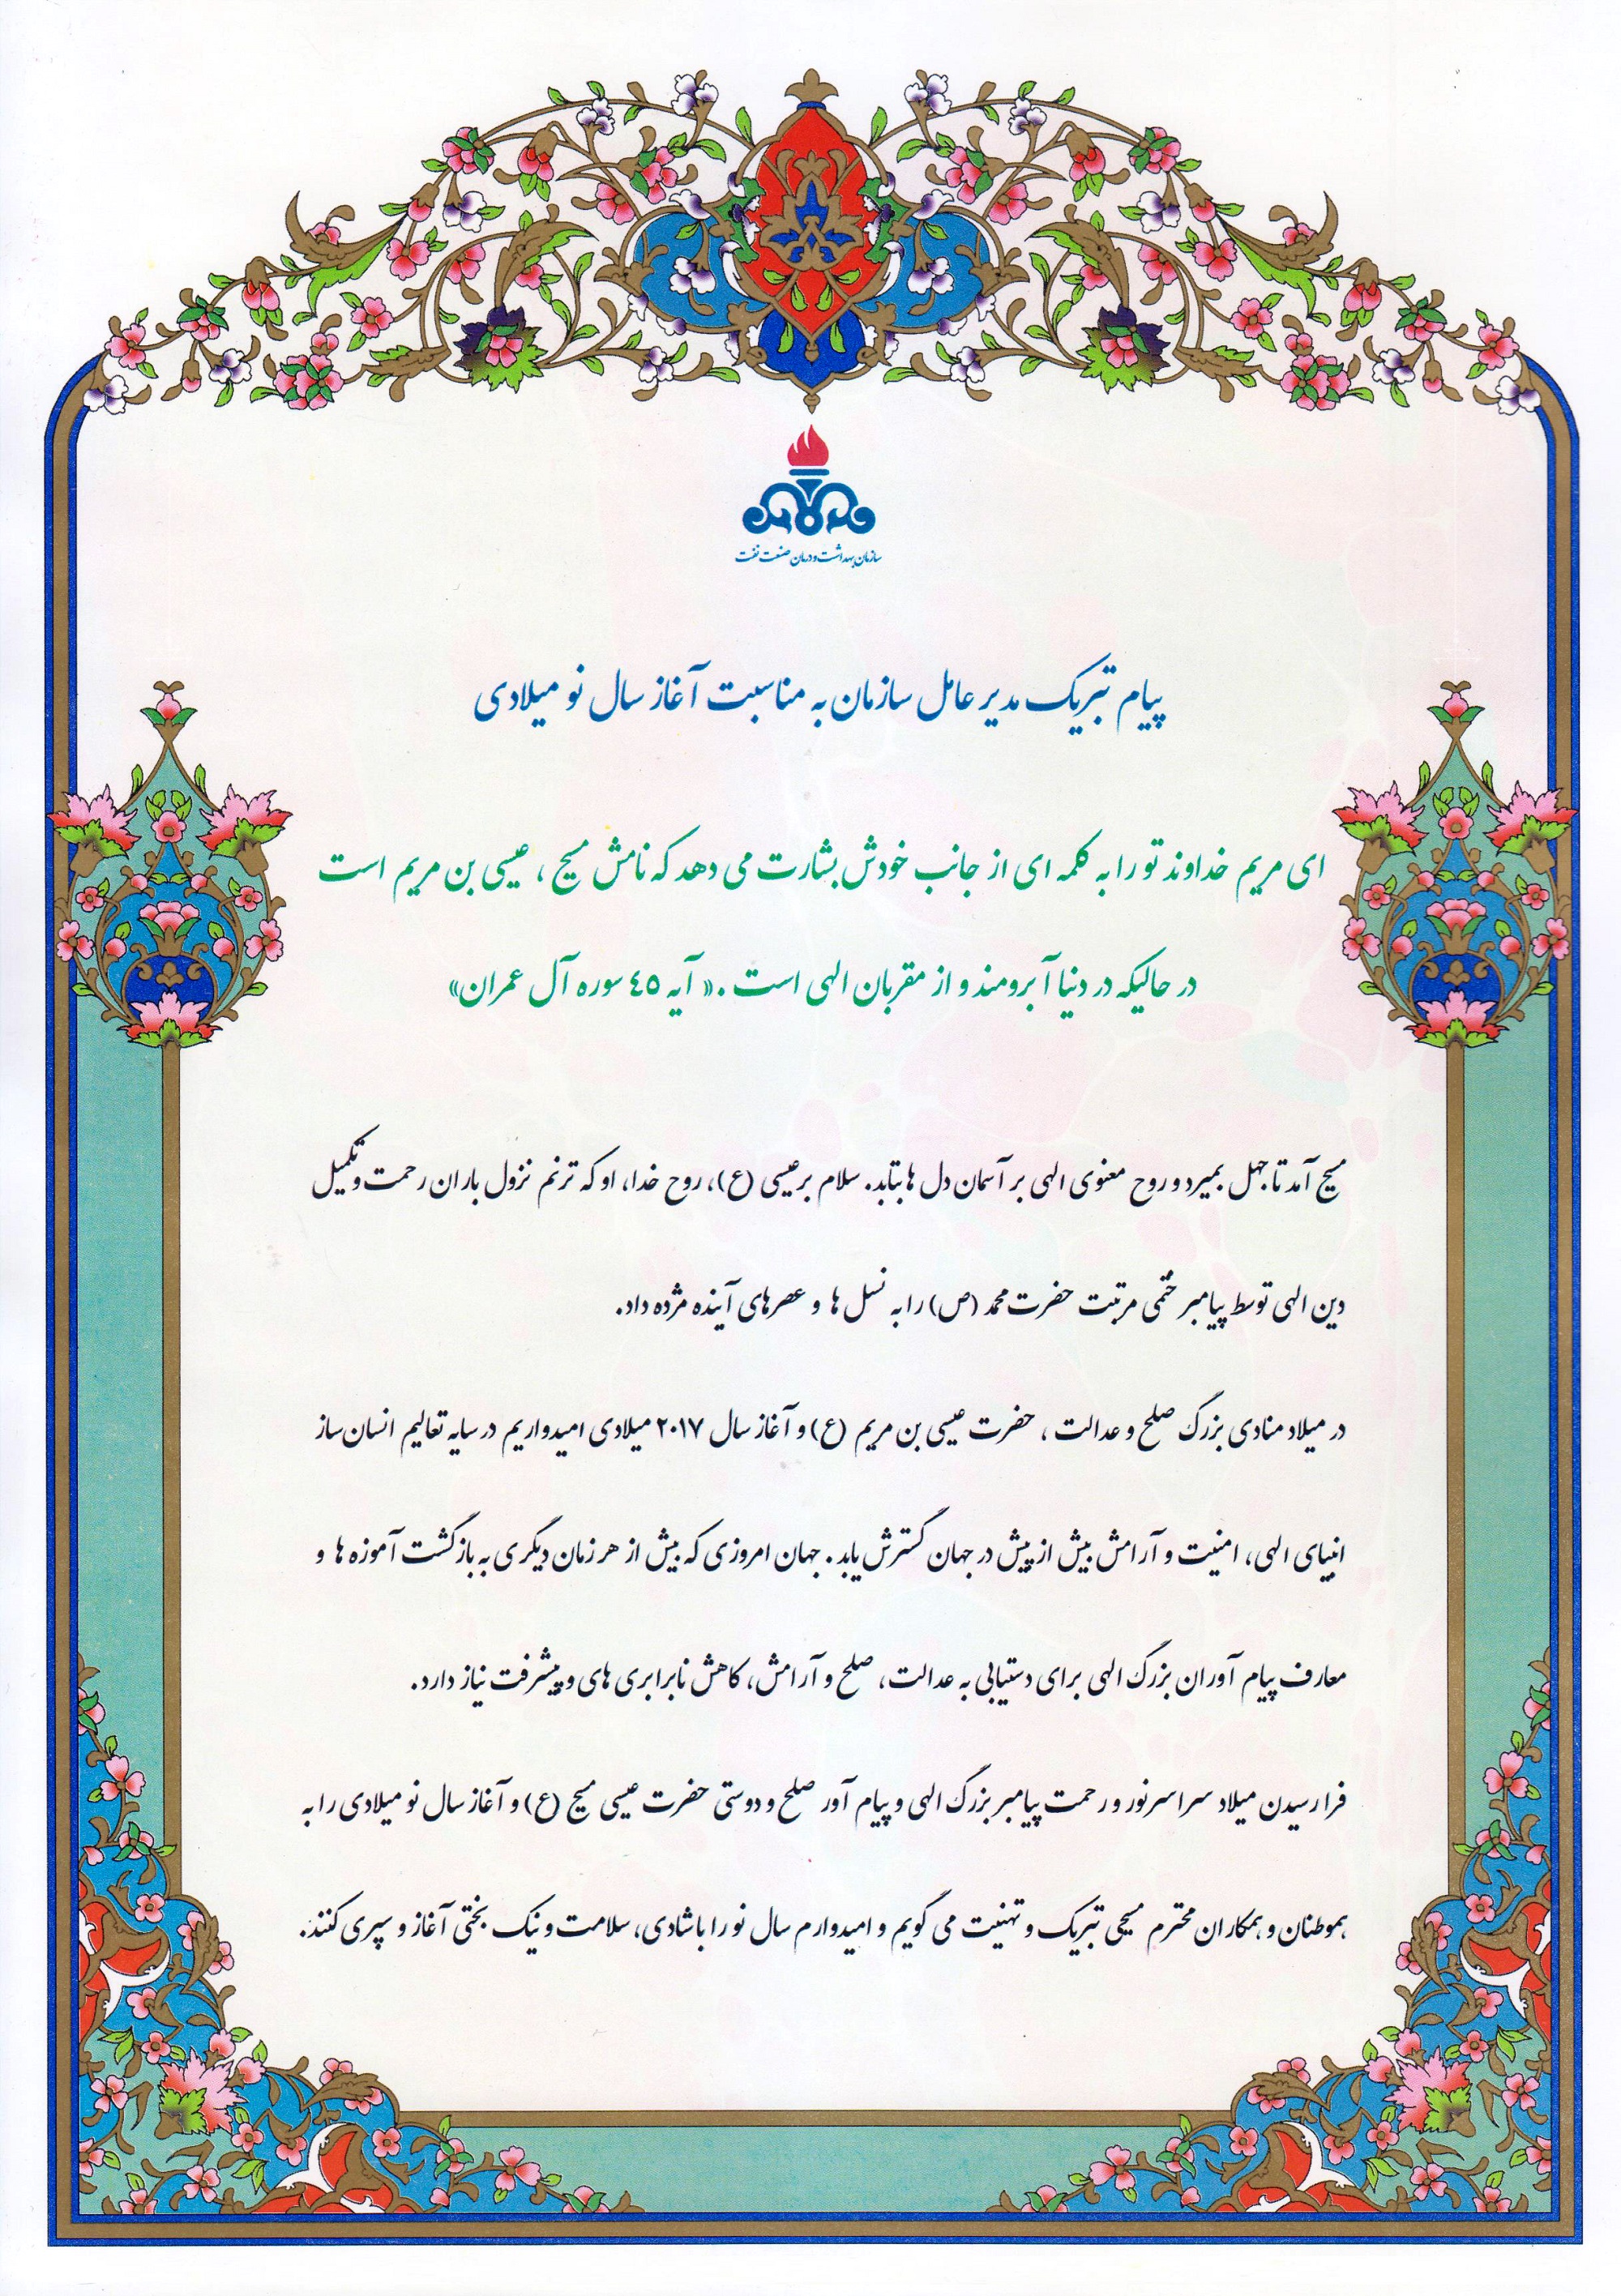 سازمان بهداشت و درمان صنعت نفت
پیام تبریک مدیر عامل سازمان به مناسبت آغاز سال نو میلادی
ای مریم خداوند تو را به کلمه ای از جانب خودش بشارت می دهد که نامش مسیح ، عیسی بن مریم است
در حالیکه در دنیا آبرومند و از مقربان الهی است . « آیه ٤٥ سوره آل عمران»
مسیح آمد تا جهل بمیرد و روح معنوی الهی بر آسمان دل ها بتابد. سلام بر عیسی (ع)، روح خدا، او که ترنم نزول باران رحمت و تکمیل
دین الهی توسط پیامبر ختمی مرتبت حضرت محمد (ص) را به نسل ها و عصرهای آینده مژده داد.
در میلاد منادی بزرگ صلح و عدالت ، حضرت عیسی بن مریم (ع) و آغاز سال ۲۰۱۷ میلادی امیدواریم در سایه تعالیم انسان ساز
انبیای الهی، امنیت و آرامش بیش از پیش در جهان گسترش یابد . جهان امروزی که بیش از هر زمان دیگری به بازگشت آموزه ها و
معارف پیام آوران بزرگ الهی برای دستیابی به عدالت، صلح و آرامش، کاهش نابرابری های و پیشرفت نیاز دارد.
فرا رسیدن میلاد سراسر نور و رحمت پیامبر بزرگ الهی و پیام آور صلح و دوستی حضرت عیسی مسیح (ع) و آغاز سال نو میلادی را به
هموطنان و همکاران محترم مسیحی تبریک و تهنیت می گویم و امیدوارم سال نو را با شادی، سلامت و نیک بختی آغاز و سپری کنند.